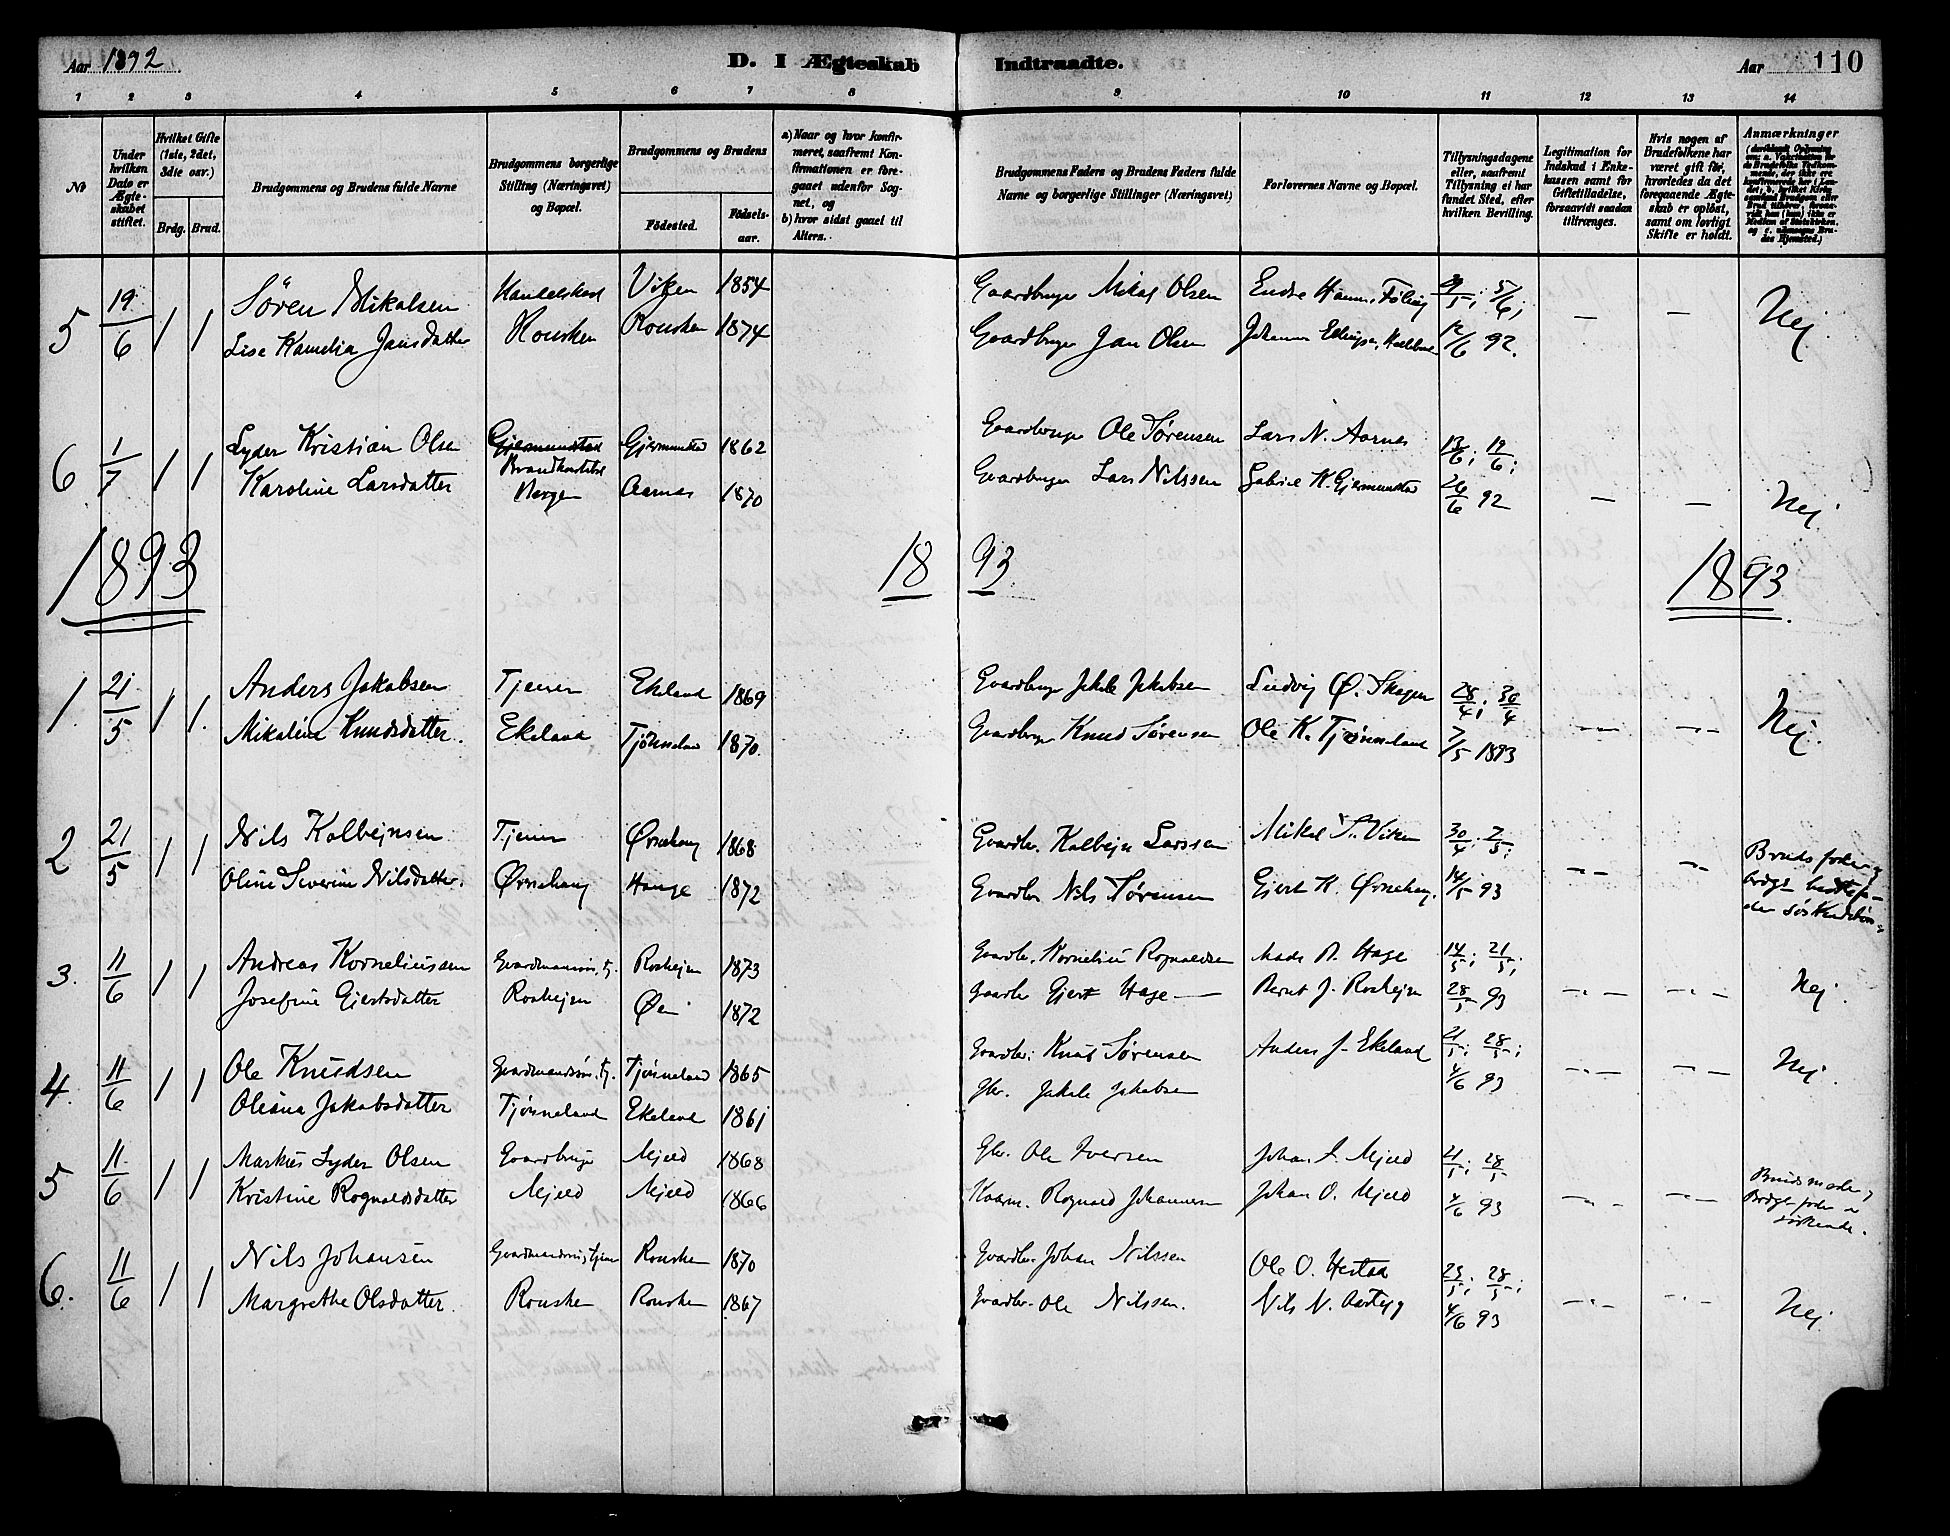 Aar 1892
D. I Ægteskab Indtraadte.
Aar 110
1 2 3 4 5 6 7 8 9 10 11 12 13 14
№
Under hvilken Dato er Ægteskabet stiftet.
Hvilket Gifte (1ste, 2det, 3die osv.)
Brdg. Brud.
Brudgommens og Brudens fulde Navne
Brudgommens borgerlige Stilling (Næringsvei) og Bopæl.
Brudgommens og Brudens
Födested. Födselsaar.
a) Naar og hvor konfirmeret, saafremt Konfirmationen er foregaaet udenfor Sognet, og
b) hvor sidst gaaet til Alters.
Brudgommens Faders og Brudens Faders fulde Navne og borgerlige Stillinger (Næringsvei)
Forlovernes Navne og Bopæl.
Tillysningsdagene eller, saafremt Tillysning ei har fundet Sted, efter hvilken Bevilling.
Legitimation for Indskud i Enkekassen samt for Giftetilladelse, forsaavidt saadan tiltrænges.
Hvis nogen af Brudefolkene har været gift før, hvorledes da det foregaaende Ægteskab er opløst, samt om lovligt Skifte er holdt.
Anmærkninger
5 19/6 1 1 Søren Mikalsen Vigen 1854 Gaardbruger Mikal Olsen 29/5; 5/6; — — Nej
Lise Kamelia Jansdatter Rousken Rousken 1874 Gaardbruger Jan Olsen 12/6 92.
6 1/7 1 1 Lyder Kristian Olsen Gjermundstad Gjermundstad 1862 Gaardbruger Ole Sørensen Lars N. Aarnes 13/6; 19/6;
Karoline Larsdatter Bergen Aarnes 1870 Gaardbruger Lars Nilssen Gabriel K. Gjermundstad 26/6 92 — — Nej
1893 18 93 1893
1. 21/5 1 1. Anders Jakobsen Tjener Ekeland 1869 Gaardbruger Jakob Jakobsen Ludvig Ø. Skagen 28/4; 30/4
Mikaline Knudsdatter. Ekeland Tjønneland 1870. Gaardbruger Knud Sørensen Ole K. Tjønneland 7/5 1893 Nej.
2 21/5 1 1 Nils Kolbejnsen Tjener Ørnehaug 1868 Gaardbr. Kolbejn Larssen Mikal S. Viken 30/4; 7/5;
Oline Severine Nilsdatter. Ørnehaug Hauge 1872 Gaardbr Nils Sørensen Gjert K. Ørnehaug. 14/5 93
Bruds fader og
3. 11/6 1 1 Andreas Korneliussen Gaardmandssøn, tj. Roshejm 1873 Gaardbr. Kornelius Rognaldsen Mads R. Hage 14/5; 21/5;
Josefine Gjertsdatter Roshejm Øen 1872 Gaardbr Gjert Hage — Bernt J. Roshejm 28/5 93 Nej
4. 11/6 1 1 Ole Knudsen Gaardmandssøn, tj. Tjønneland 1865 Gaardbr. Knud Sørensen Anders J. Ekeland 21/5; 28/5;
Oliana Jakobsdatter Tjønneland Ekeland 1861 Gbr. Jakob Jakobsen 4/6 93 Nej.
5 11/6 1 1 Markus Lyder Olsen Gaardbruger Mjeld 1868 Gbr. Ole Iversen Johan I. Mjeld 21/5; 28/5
Kristine Rognaldsdatter Mjeld Mjeld 1866 Rognald Johannesen Johan O. Mjeld 4/6 93
Brudsmoder og
Brdgs fader er
søskende.
6. 11/6 1 1 Nils Johansen Gaardmandssøn, tjener Rousken 1870 Gaardbr. Johan Nilssen Ole O. Hestad 28/5;
Margrethe Olsdatter. Rousken Rousken 1867 Gaardbr. Ole Nilssen. 4/6 93 Nej.